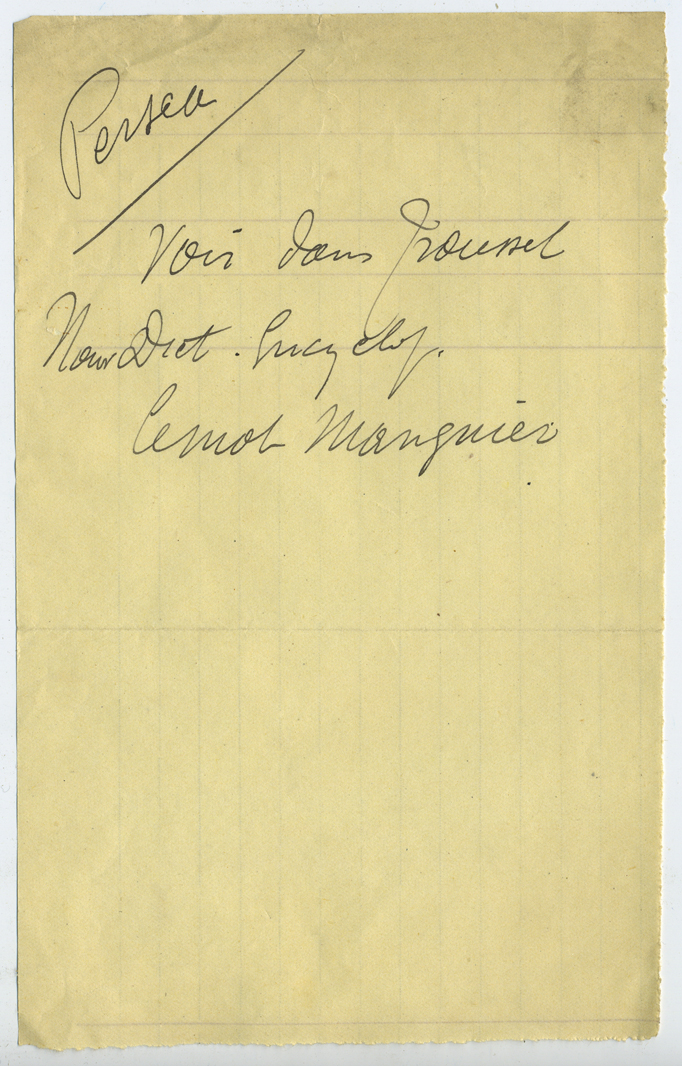 Persea
Voir dans Trousset
Nouv Dict. Encyclop.
le mot Manguier